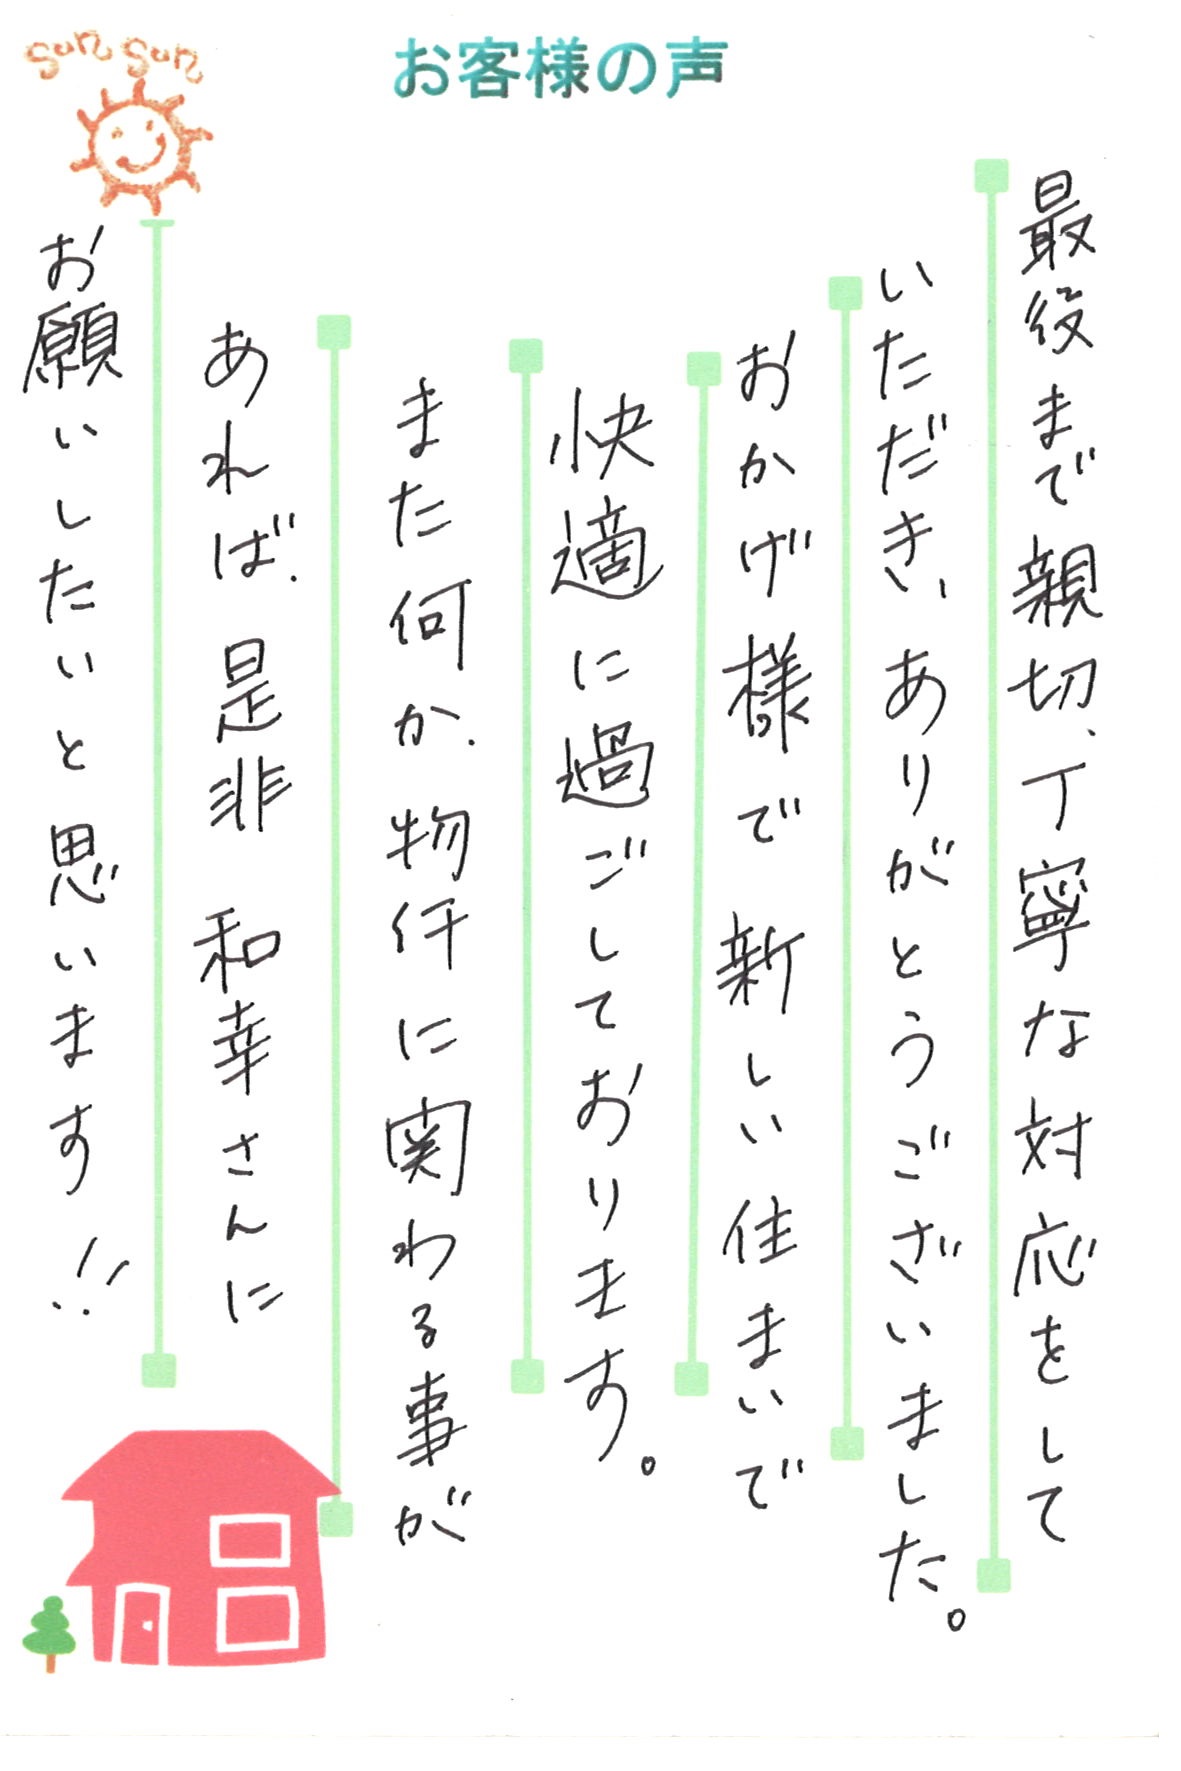 sun sun
お客様の声
最後まで親切、丁寧な対応をして
いただき、ありがとうございました。
おかげ様で新しい住まいで
快適に過ごしております。
また何か、物件に関わる事が
あれば、是非 和幸さんに
お願いしたいと思います!!